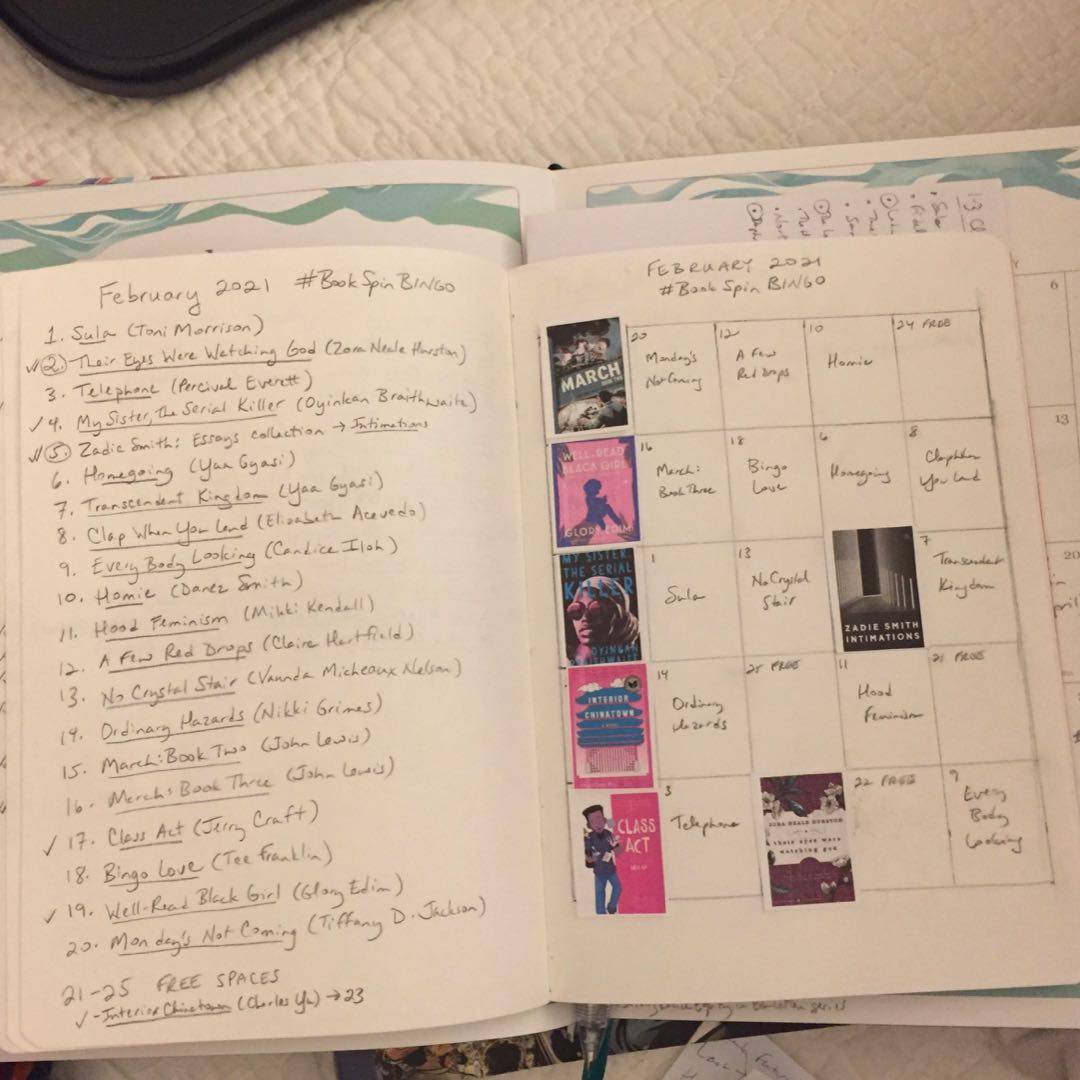 February 2021 #BookSpinBINGO
1. Sula (Toni Morrison)
✓✓② Their Eyes Were Watching God (Zora Neale Hurston)
3. Telephone (Percival Everett)
✓ 4. My Sister, The Serial Killer (Oyinkan Braithwaite)
✓✓⑤ Zadie Smith: Essays collection → Intimations
6. Homegoing (Yaa Gyasi)
7. Transcendent Kingdom (Yaa Gyasi)
8. Clap When You Land (Elizabeth Acevedo)
9. Every Body Looking (Candice Iloh)
10. Homie (Danez Smith)
11. Hood Feminism (Mikki Kendall)
12. A Few Red Drops (Claire Hartfield)
13. No Crystal Stair (Vaunda Micheaux Nelson)
14. Ordinary Hazards (Nikki Grimes)
15. March: Book Two (John Lewis)
16. March: Book Three (John Lewis)
✓ 17. Class Act (Jerry Craft)
18. Bingo Love (Tee Franklin)
✓ 19. Well-Read Black Girl (Glory Edim)
20. Monday's Not Coming (Tiffany D. Jackson)
21-25 FREE SPACES
✓ - Interior Chinatown (Charles Yu) → 23
FEBRUARY 2021
#BookSpinBINGO
MARCH
20
Monday's
Not Coming
12
A Few
Red Drops
10
Homie
24 FREE
WELL-READ
BLACK GIRL
GLORY EDIM
16
March:
Book Three
18
Bingo
Love
6
Homegoing
8
Clap When
You Land
MY SISTER,
THE SERIAL
KILLER
OYINKAN
BRAITHWAITE
1
Sula
13
No Crystal
Stair
ZADIE SMITH
INTIMATIONS
7
Transcendent
Kingdom
INTERIOR
CHINATOWN
14
Ordinary
Hazards
25 FREE
11
Hood
Feminism
21 FREE
CLASS
ACT
3
Telephone
ZORA NEALE HURSTON
their eyes were
watching god
22 FREE
9
Every
Body
Looking
6
13
20